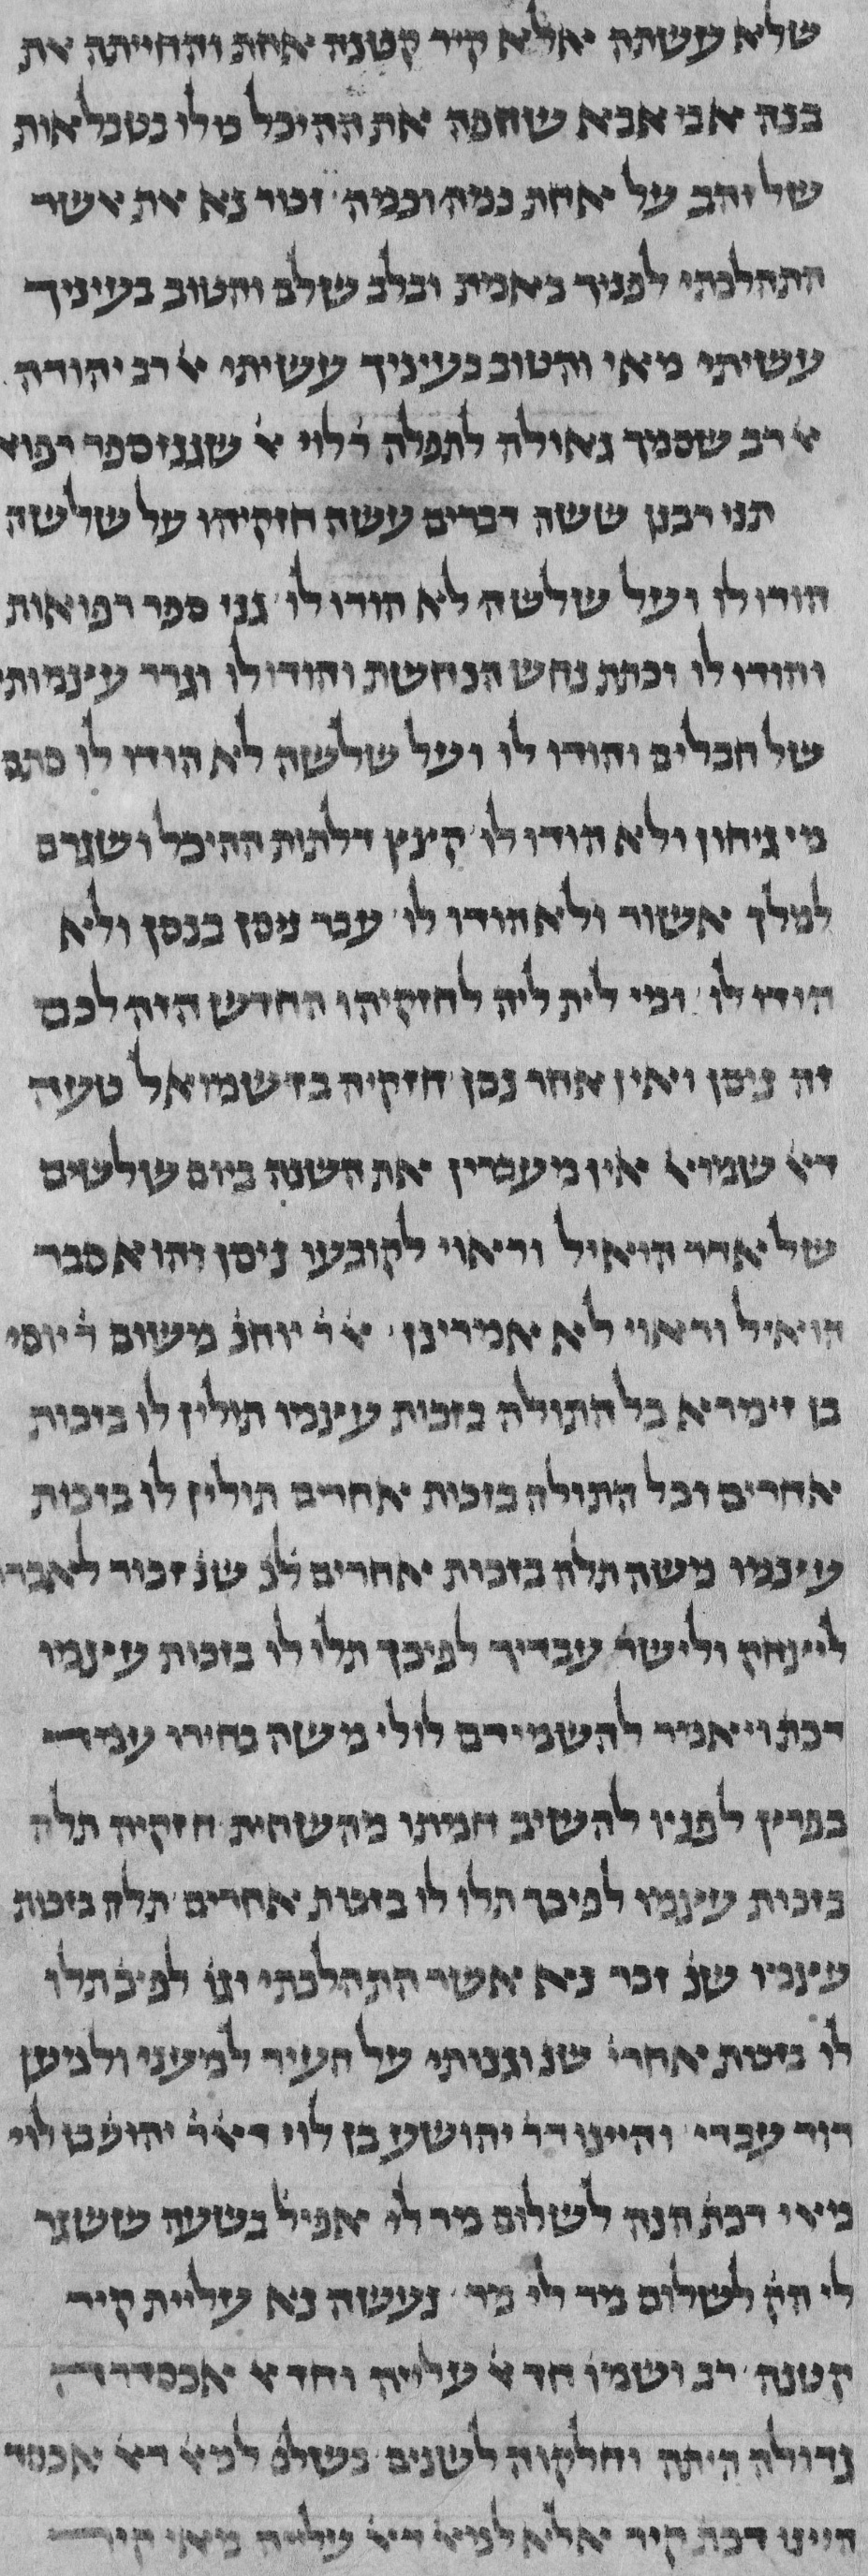 שלא עשתה אלא קיר קטנה אחת והחייתה את
בנה אבי אבא שחפה את ההיכל כולו בטבלאות
של זהב על אחת כמה וכמה זכור נא את אשר
התהלכתי לפניך באמת ובלב שלם והטוב בעיניך
עשיתי מאי והטוב בעיניך עשיתי א רב יהודה
א רב שסמך גאולה לתפלה ר לוי א שגנז ספר רפוא
תנו רבנן ששה דברים עשה חזקיהו על שלשה
הודו לו ועל שלשה לא הודו לו גנז ספר רפואות
והודו לו וכתת נחש הנחשת והודו לו וגרר עצמות
של חבלים והודו לו ועל שלשה לא הודו לו סתם
מי גיחון ולא הודו לו קיצץ דלתות ההיכל ושגרם
למלך אשור ולא הודו לו עבר ניסן בניסן ולא
הודו לו ומי לית ליה לחזקיהו החדש הזה לכם
זה ניסן ואין אחר ניסן חזקיה בדשמואל טעה
דא שמוא אין מעברין את השנה ביום שלשים
של אדר הואיל וראוי לקובעו ניסן והוא סבר
הואיל וראוי לא אמרינן א ר יוחנ משום ר יוסי
בן זימרא כל התולה בזכות עצמו תולין לו בזכות
אחרים וכל התולה בזכות אחרים תולין לו בזכות
עצמו משה תלה בזכות אחרים לנ שנ זכור לאברה
ליצחק ולישר עבדיך לפיכך תלו לו בזכות עצמו
דכת ויאמר להשמידם לולי משה בחירו עמד
בפרץ לפניו להשיב חמתו מהשחית חזקיה תלה
בזכות עצמו לפיכך תלו לו בזכות אחרים תלה בזכות
עצמו שנ זכר נא אשר התהלכתי וגו לפיכ תלו
לו בזכות אחרי שנ וגנותי על העיר למעני ולמען
דוד עבדי והיינו דר יהושע בן לוי דאר יהושע בן לוי
מאי דכת הנה לשלום מר לי אפיל בשעה ששגר
לי הק לשלום מר לי מר נעשה נא עליית קיר
קטנה רב ושמו חד א עלייה וחד א אכסדרה
גדולה היתה וחלקוה לשנים בשלמ למא דא אכסד
היינו דכת קיר אלא למא דא עלייה מאי קיר